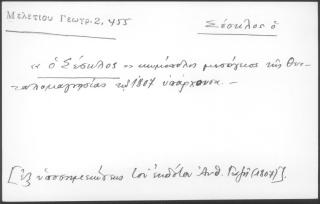 Μελετίου Γεωγρ. 2, 455
Σέσκλος ὁ
« ὁ Σέσκλος » κωμόπολις μεσόγειος τῆς Θετ-
ταλομαγνησίας τῷ 1807 ὑπάρχουσα. —
[ἐξ ὑποσημειώσεως τοῦ ἐκδότου Ἀνθ. Γαζῆ (1807)].